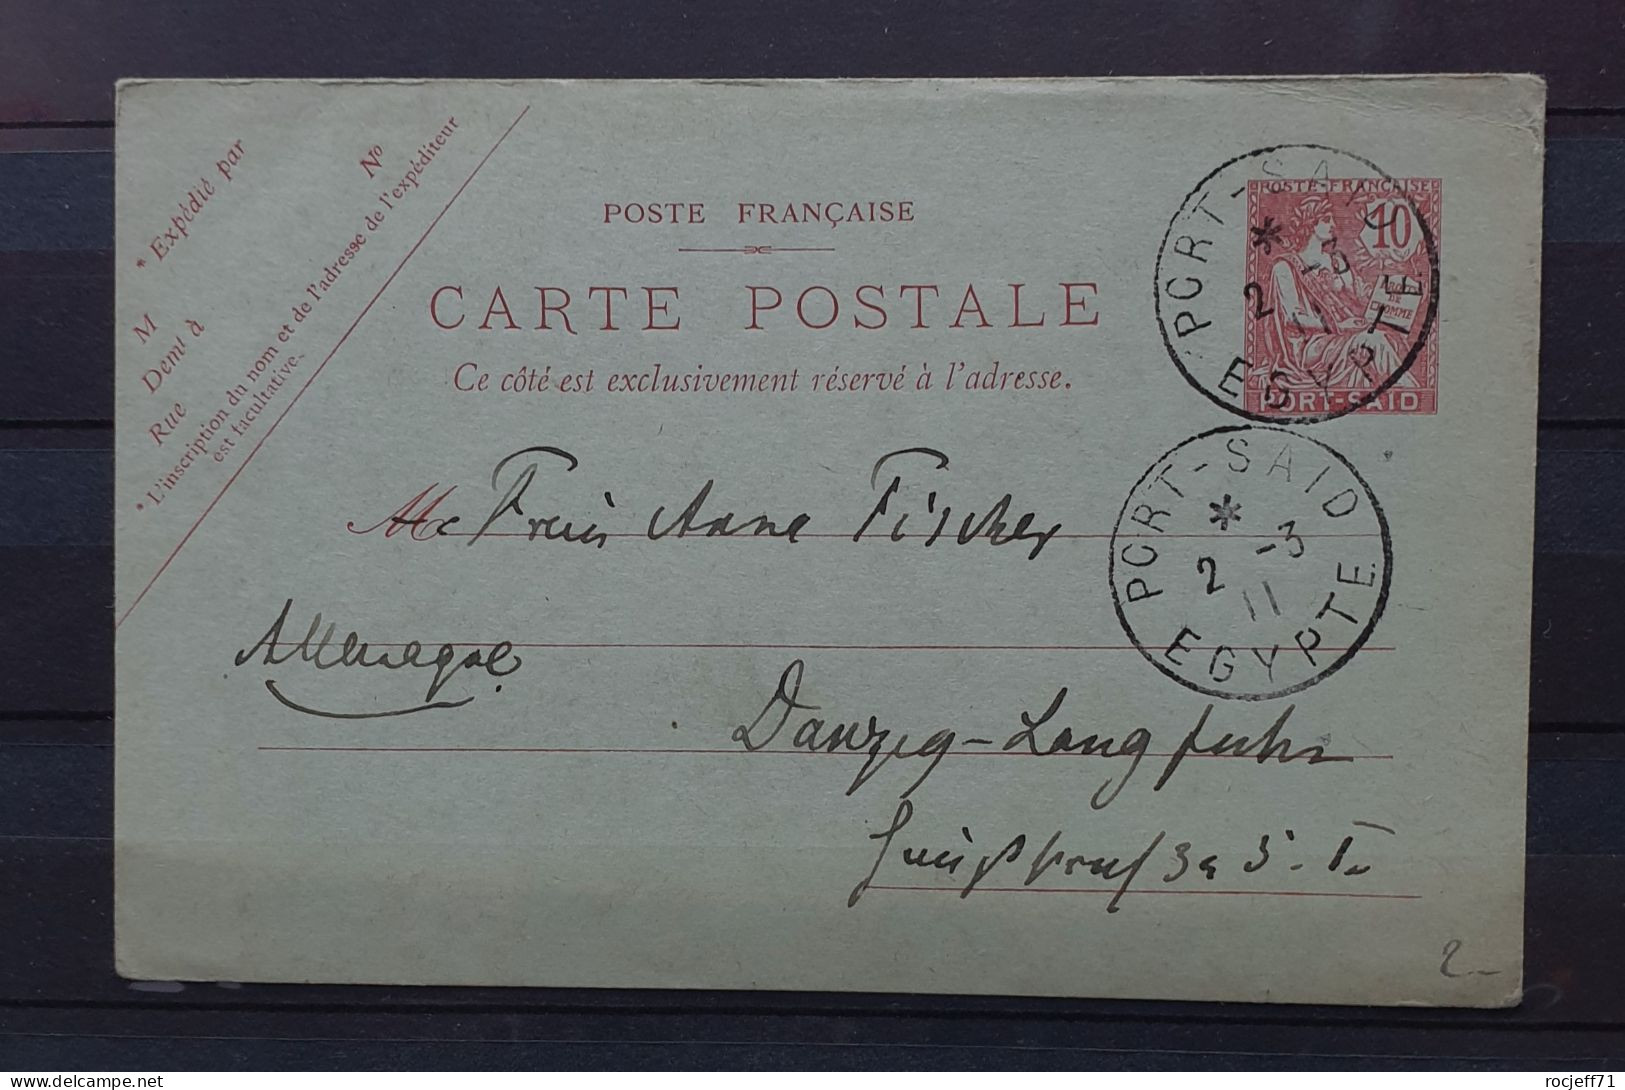 * Expédié par
N°
M
Demt à
Rue
* L'inscription du nom et de l'adresse de l'expéditeur
est facultative.
POSTE FRANÇAISE
CARTE POSTALE
Ce côté est exclusivement réservé à l'adresse.
POSTE-FRANÇAISE
10
DROITS
DE
L'HOMME
PORT-SAID
PORT-SAID
* 2 -3
11
EGYPTE
PORT-SAID
* 2 -3
11
EGYPTE
M Anne Fischer
Allemagne
Danzig-Langfuhr
2-
delcampe.net
rocjeff71